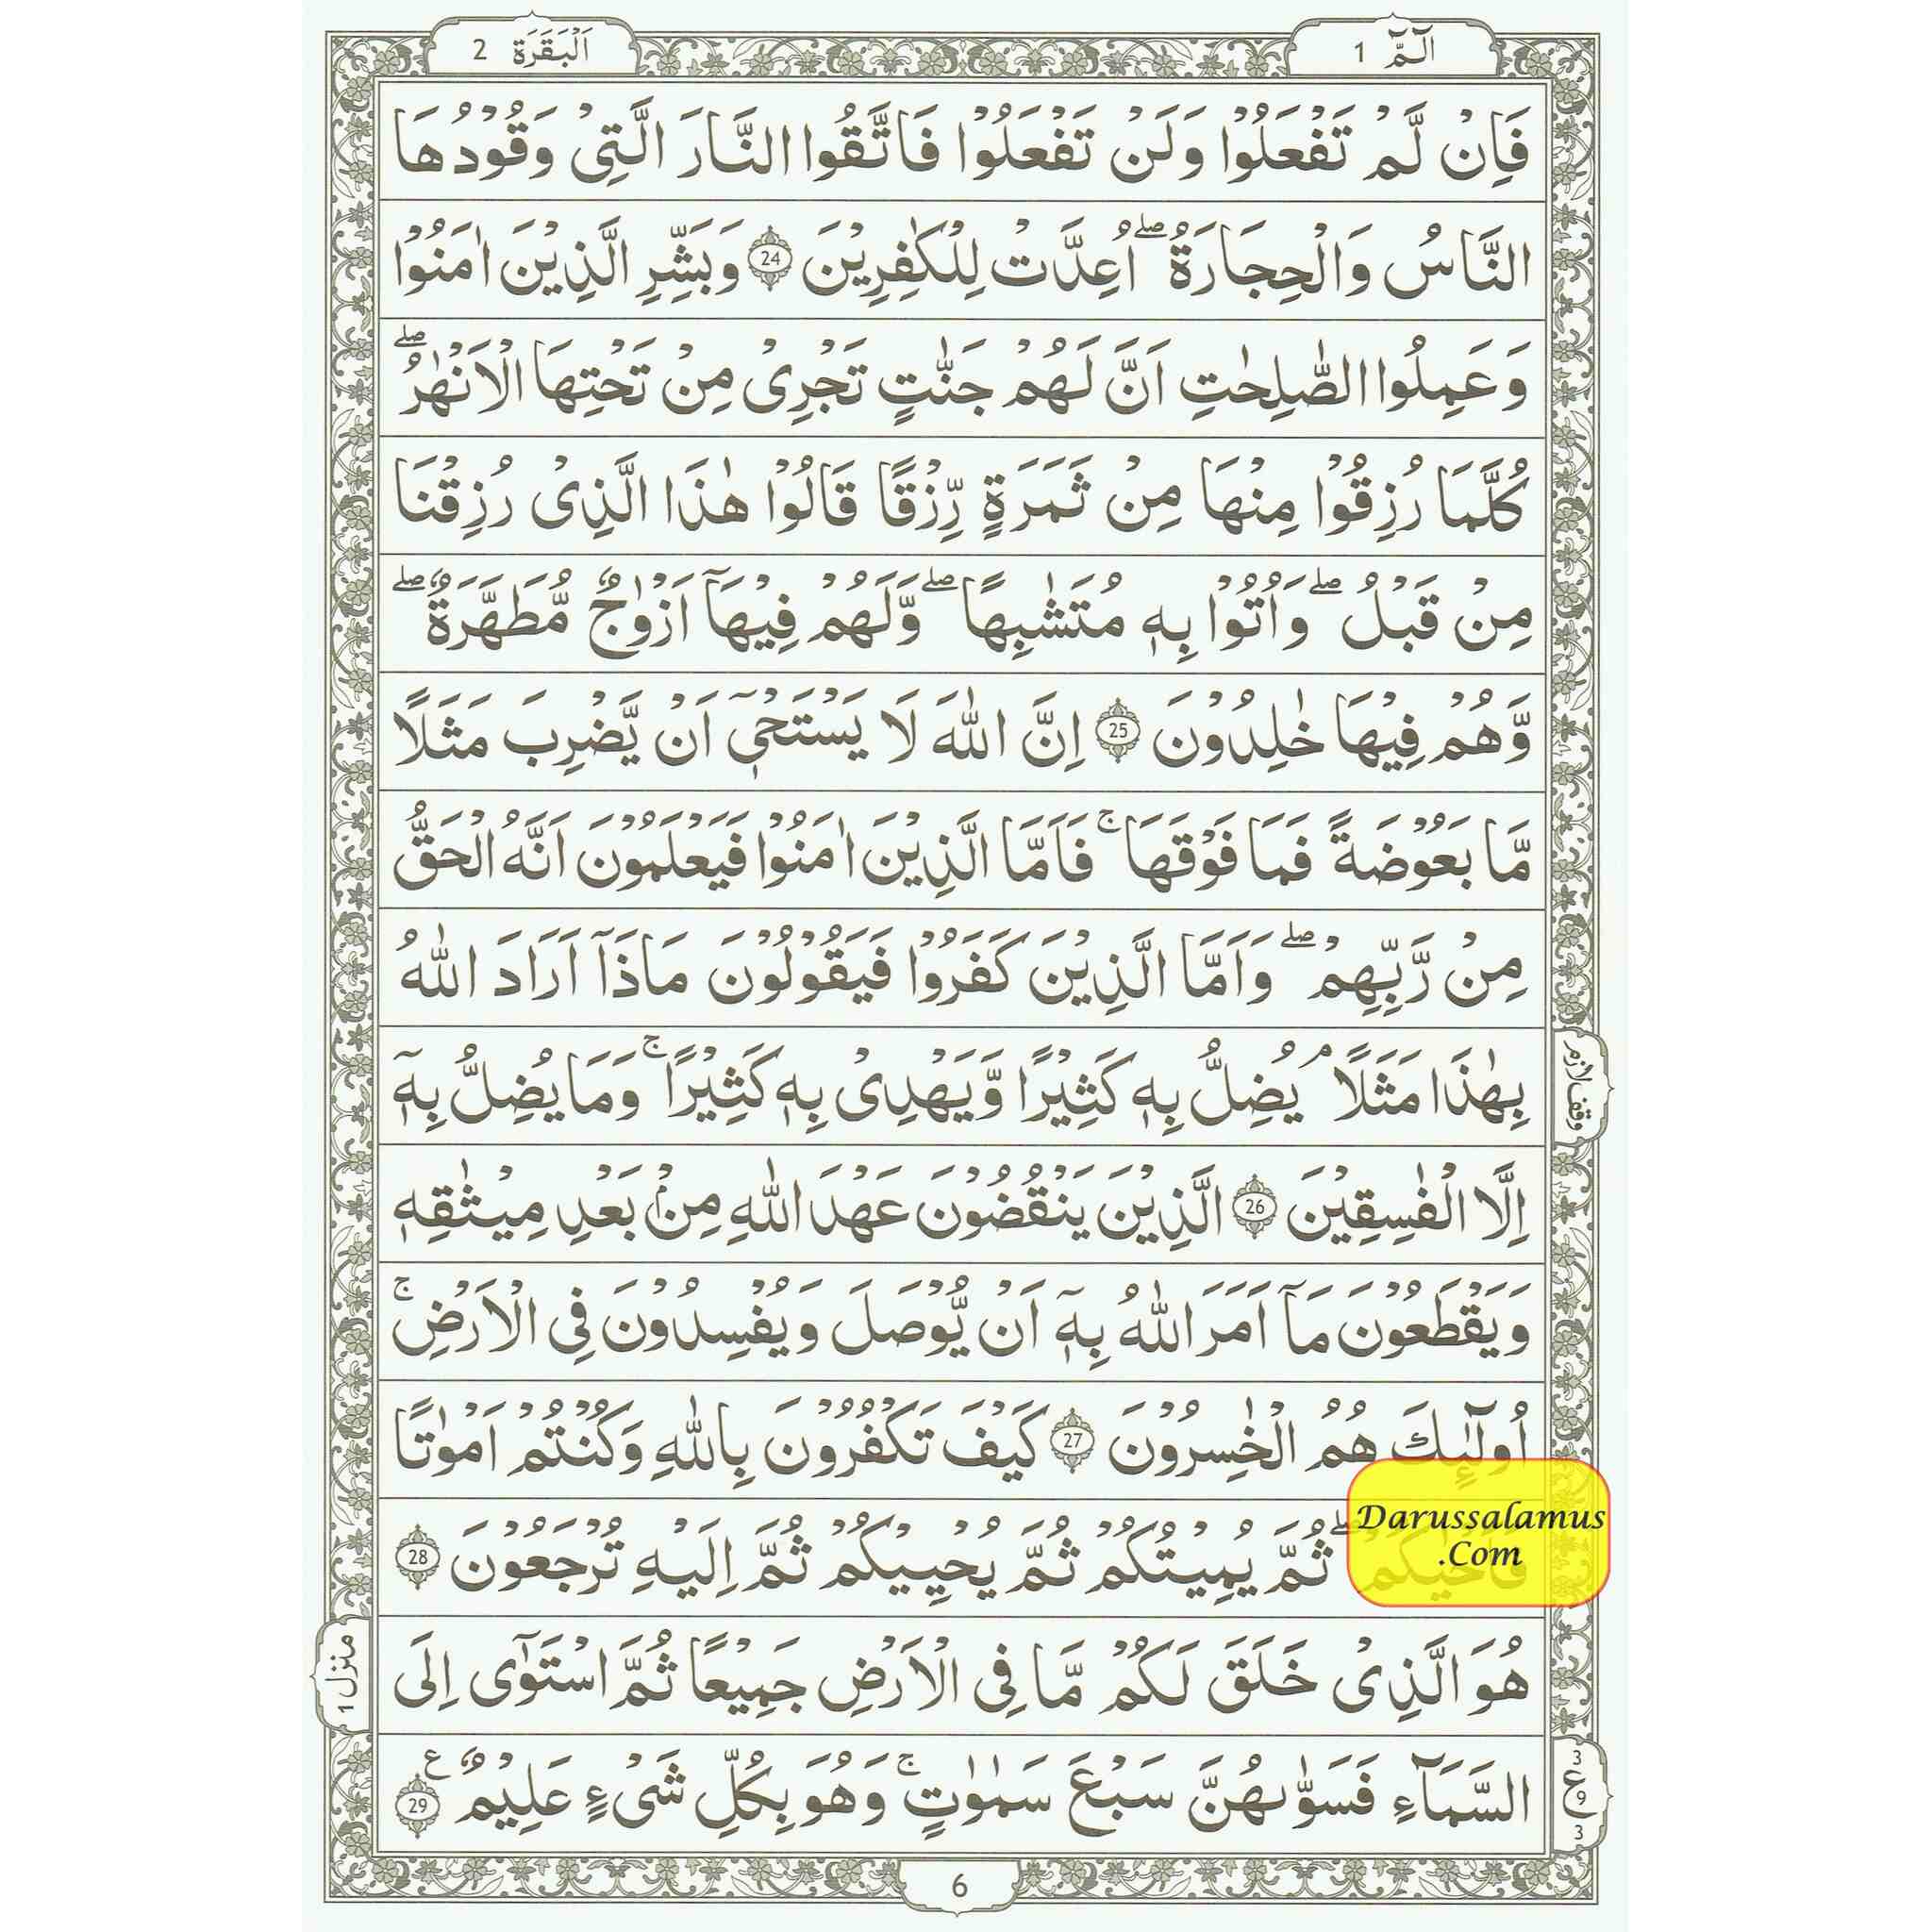 الٓـمّٓ 1
اَلْبَقَرَة 2
فَاِنْ لَّمْ تَفْعَلُوْا وَلَنْ تَفْعَلُوْا فَاتَّقُوا النَّارَ الَّتِىْ وَقُوْدُهَا
النَّاسُ وَالْحِجَارَةُ ۖ اُعِدَّتْ لِلْكٰفِرِيْنَ 24 وَبَشِّرِ الَّذِيْنَ اٰمَنُوْا
وَعَمِلُوا الصّٰلِحٰتِ اَنَّ لَهُمْ جَنّٰتٍ تَجْرِىْ مِنْ تَحْتِهَا الْاَنْهٰرُ ۖ
كُلَّمَا رُزِقُوْا مِنْهَا مِنْ ثَمَرَةٍ رِّزْقًا قَالُوْا هٰذَا الَّذِىْ رُزِقْنَا
مِنْ قَبْلُ ۖ وَاُتُوْا بِهٖ مُتَشٰبِهًا ۖ وَّلَهُمْ فِيْهَآ اَزْوٰجٌ مُّطَهَّرَةٌ ۖ
وَّهُمْ فِيْهَا خٰلِدُوْنَ 25 اِنَّ اللّٰهَ لَا يَسْتَحْىٖٓ اَنْ يَّضْرِبَ مَثَلًا
مَّا بَعُوْضَةً فَمَا فَوْقَهَا ۚ فَاَمَّا الَّذِيْنَ اٰمَنُوْا فَيَعْلَمُوْنَ اَنَّهُ الْحَقُّ
مِنْ رَّبِّهِمْ ۖ وَاَمَّا الَّذِيْنَ كَفَرُوْا فَيَقُوْلُوْنَ مَاذَآ اَرَادَ اللّٰهُ
بِهٰذَا مَثَلًا ۘ يُضِلُّ بِهٖ كَثِيْرًا وَّيَهْدِىْ بِهٖ كَثِيْرًا ۚ وَمَا يُضِلُّ بِهٖٓ
وقف لازم
اِلَّا الْفٰسِقِيْنَ 26 الَّذِيْنَ يَنْقُضُوْنَ عَهْدَ اللّٰهِ مِنْۢ بَعْدِ مِيْثٰقِهٖ
وَيَقْطَعُوْنَ مَآ اَمَرَ اللّٰهُ بِهٖٓ اَنْ يُّوْصَلَ وَيُفْسِدُوْنَ فِى الْاَرْضِ ۚ
اُولٰٓئِكَ هُمُ الْخٰسِرُوْنَ 27 كَيْفَ تَكْفُرُوْنَ بِاللّٰهِ وَكُنْتُمْ اَمْوٰتًا
Darussalamus
.Com
فَاَحْيٰكُمْ ۖ ثُمَّ يُمِيْتُكُمْ ثُمَّ يُحْيِيْكُمْ ثُمَّ اِلَيْهِ تُرْجَعُوْنَ 28
هُوَ الَّذِىْ خَلَقَ لَكُمْ مَّا فِى الْاَرْضِ جَمِيْعًا ثُمَّ اسْتَوٰٓى اِلَى
منزل 1
السَّمَآءِ فَسَوّٰىهُنَّ سَبْعَ سَمٰوٰتٍ ۚ وَهُوَ بِكُلِّ شَىْءٍ عَلِيْمٌ ع 29
3
ع
9
3
6